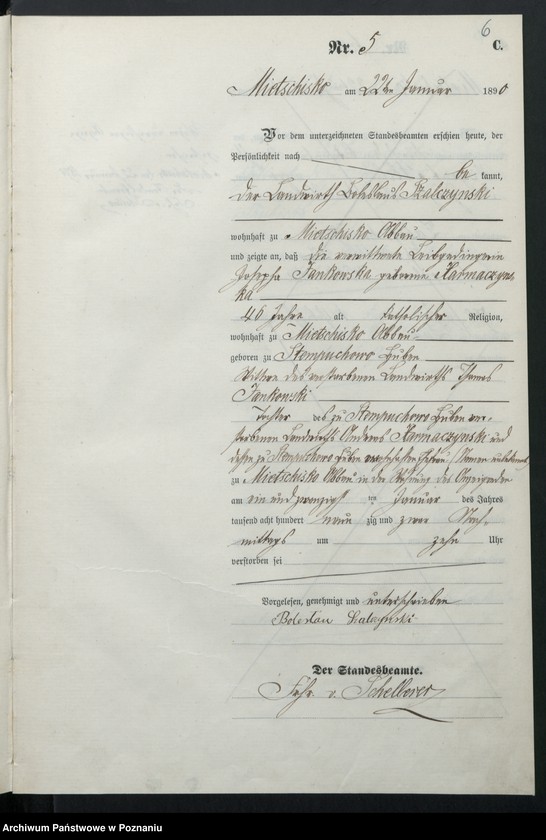 6
Nr. 5 C.
Mietschisko am 22ten Januar 1890
Vor dem unterzeichneten Standesbeamten erschien heute, der
Persönlichkeit nach be kannt,
der Landwirth Boleslaus Szalczynski
wohnhaft zu Mietschisko Abbau
und zeigte an, daß die verwittwete Leibgedingerin
Josepha Jankowska geborene Karmaczyns-
ka
46 Jahre alt katholischer Religion,
wohnhaft zu Mietschisko Abbau
geboren zu Stempuchowo Huben
Wittwe des verstorbenen Landwirths Thomas
Jankowski
Tochter des zu Stempuchowo Huben ver-
storbenen Landwirths Andreas Karmaczynski und
dessen zu Stempuchowo Huben verstorbenen Ehefrau, Namen unbekannt
zu Mietschisko Abbau in der Wohnung des Anzeigenden
am ein und zwanzigsten Januar des Jahres
tausend acht hundert neun zig und zwar Nach-
mittags um zehn Uhr
verstorben sei
Vorgelesen, genehmigt und unterschrieben
Boleslau
Der Standesbeamte.
Frhr. v.
Archiwum Państwowe w Poznaniu